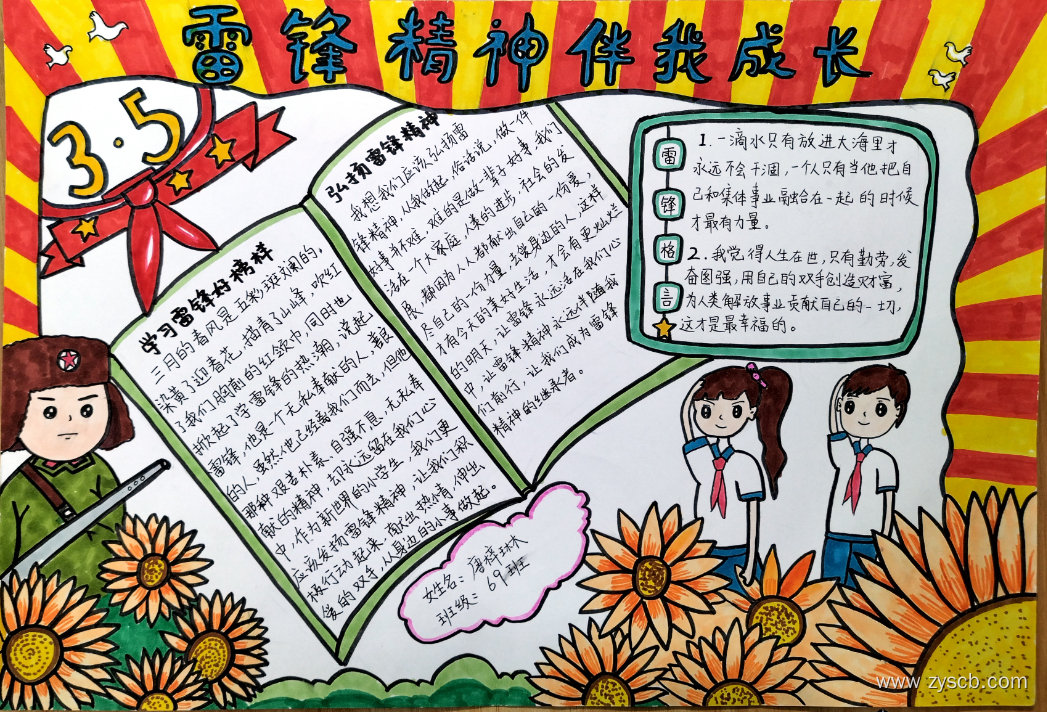 雷锋精神伴我成长
3·5
学习雷锋好榜样
三月的春风是五彩斑斓的,
染黄了迎春花,描青了山峰,吹红
了我们胸前的红领巾,同时也
掀起了学雷锋的热潮,说起
雷锋,他是一个无私奉献的人,善良
的人,虽然他已经离我们而去,但他
那种艰苦朴素、自强不息、无私奉
献的精神,却永远留在我们心
中,作为新世界的小学生,我们更
应该发扬雷锋精神,让我们积
极行动起来,献出热情,伸出
爱的双手,从身边的小事做起。
弘扬雷锋精神
我想我们应该弘扬雷
锋精神,从我做起,俗话说,做一件
好事并不难,难的是做一辈子好事,我们
活在一个大家庭,人类的进步,社会的发
展,都因为人人都献出自己的一份爱,
尽自己的一份力量,去暖身边的人,这样
才有今天的美好生活,才会有更灿烂
的明天,让雷锋永远活在我们心
中,让雷锋精神永远伴随我
们前行,让我们成为雷锋
精神的继承者。
雷锋格言
1.一滴水只有放进大海里才
永远不会干涸,一个人只有当他把自
己和集体事业融合在一起的时候
才最有力量。
2.我觉得人生在世,只有勤劳,发
奋图强,用自己的双手创造财富,
为人类解放事业贡献自己的一切,
这才是最幸福的。
姓名:唐梓琳
班级:69班
www.zyscb.com